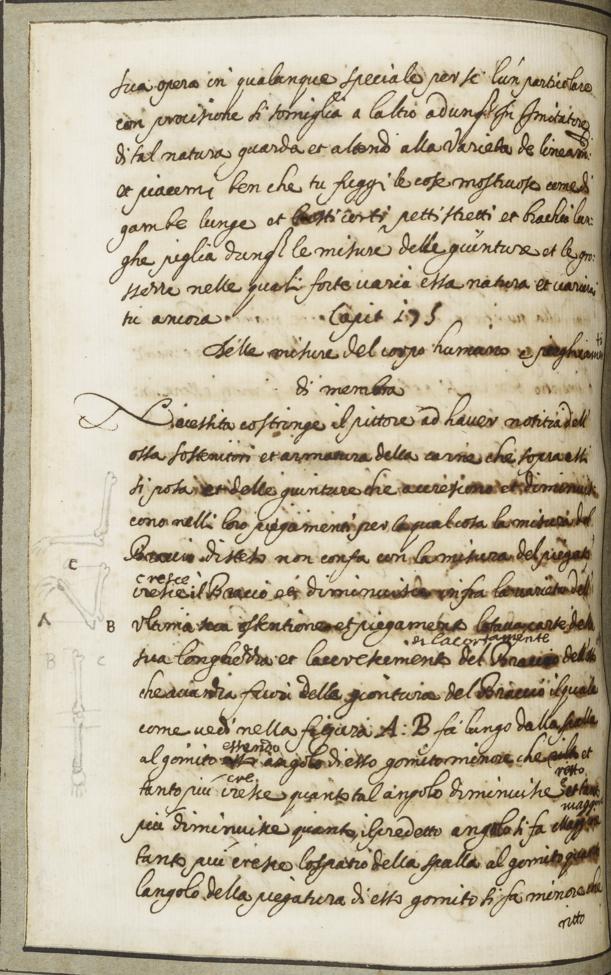 sua opera in qualunque speciale per se l'un particolare
con precisione si somiglia a l'altro adunque tu imitatore
di tal natura guarda et attendi alla varieta de lineam:
et piacemi ben che tu fuggi le cose mostruose come di
gambe lunge et busti corti petti stretti et brachia lun:
ghe piglia dunque le misure delle giunture et le gro:
sserre nelle quali forte varia essa natura et varierai
tu ancora. Capit 175
Delle misure del corpo humano e pieghiamti
di membra
Necessita costringe il pittore ad haver notitia dell
ossa sostenitori et armatura della carne che sopra essi
si posa et delle giunture che accrescono et diminuis
cono nelli loro piegamenti per la qual cosa la misura del
Braccio disteso non confa con la misura del piegato
cresce
cresce il Braccio et diminuisce infra la varieta dell
C
ultima sua estentione et piegamento
A B
di lacortamente
sua longhezza et lacrescimento del Braccio
B C
che avanza fuori della giontura del Braccio il quale
come vedi nella figura A: B fa lungo dalla spalla
essendo
al gomito angolo di esso gomito minore che et
retto
cre
tanto più cresce quanto tal angolo diminuisce et tanto
maggior
più diminuisce quanto il predetto angolo si fa
tanto più cresce lo spatio della spalla al gomito quanto
langolo della piegatura di esso gomito si fa minore che
ritto